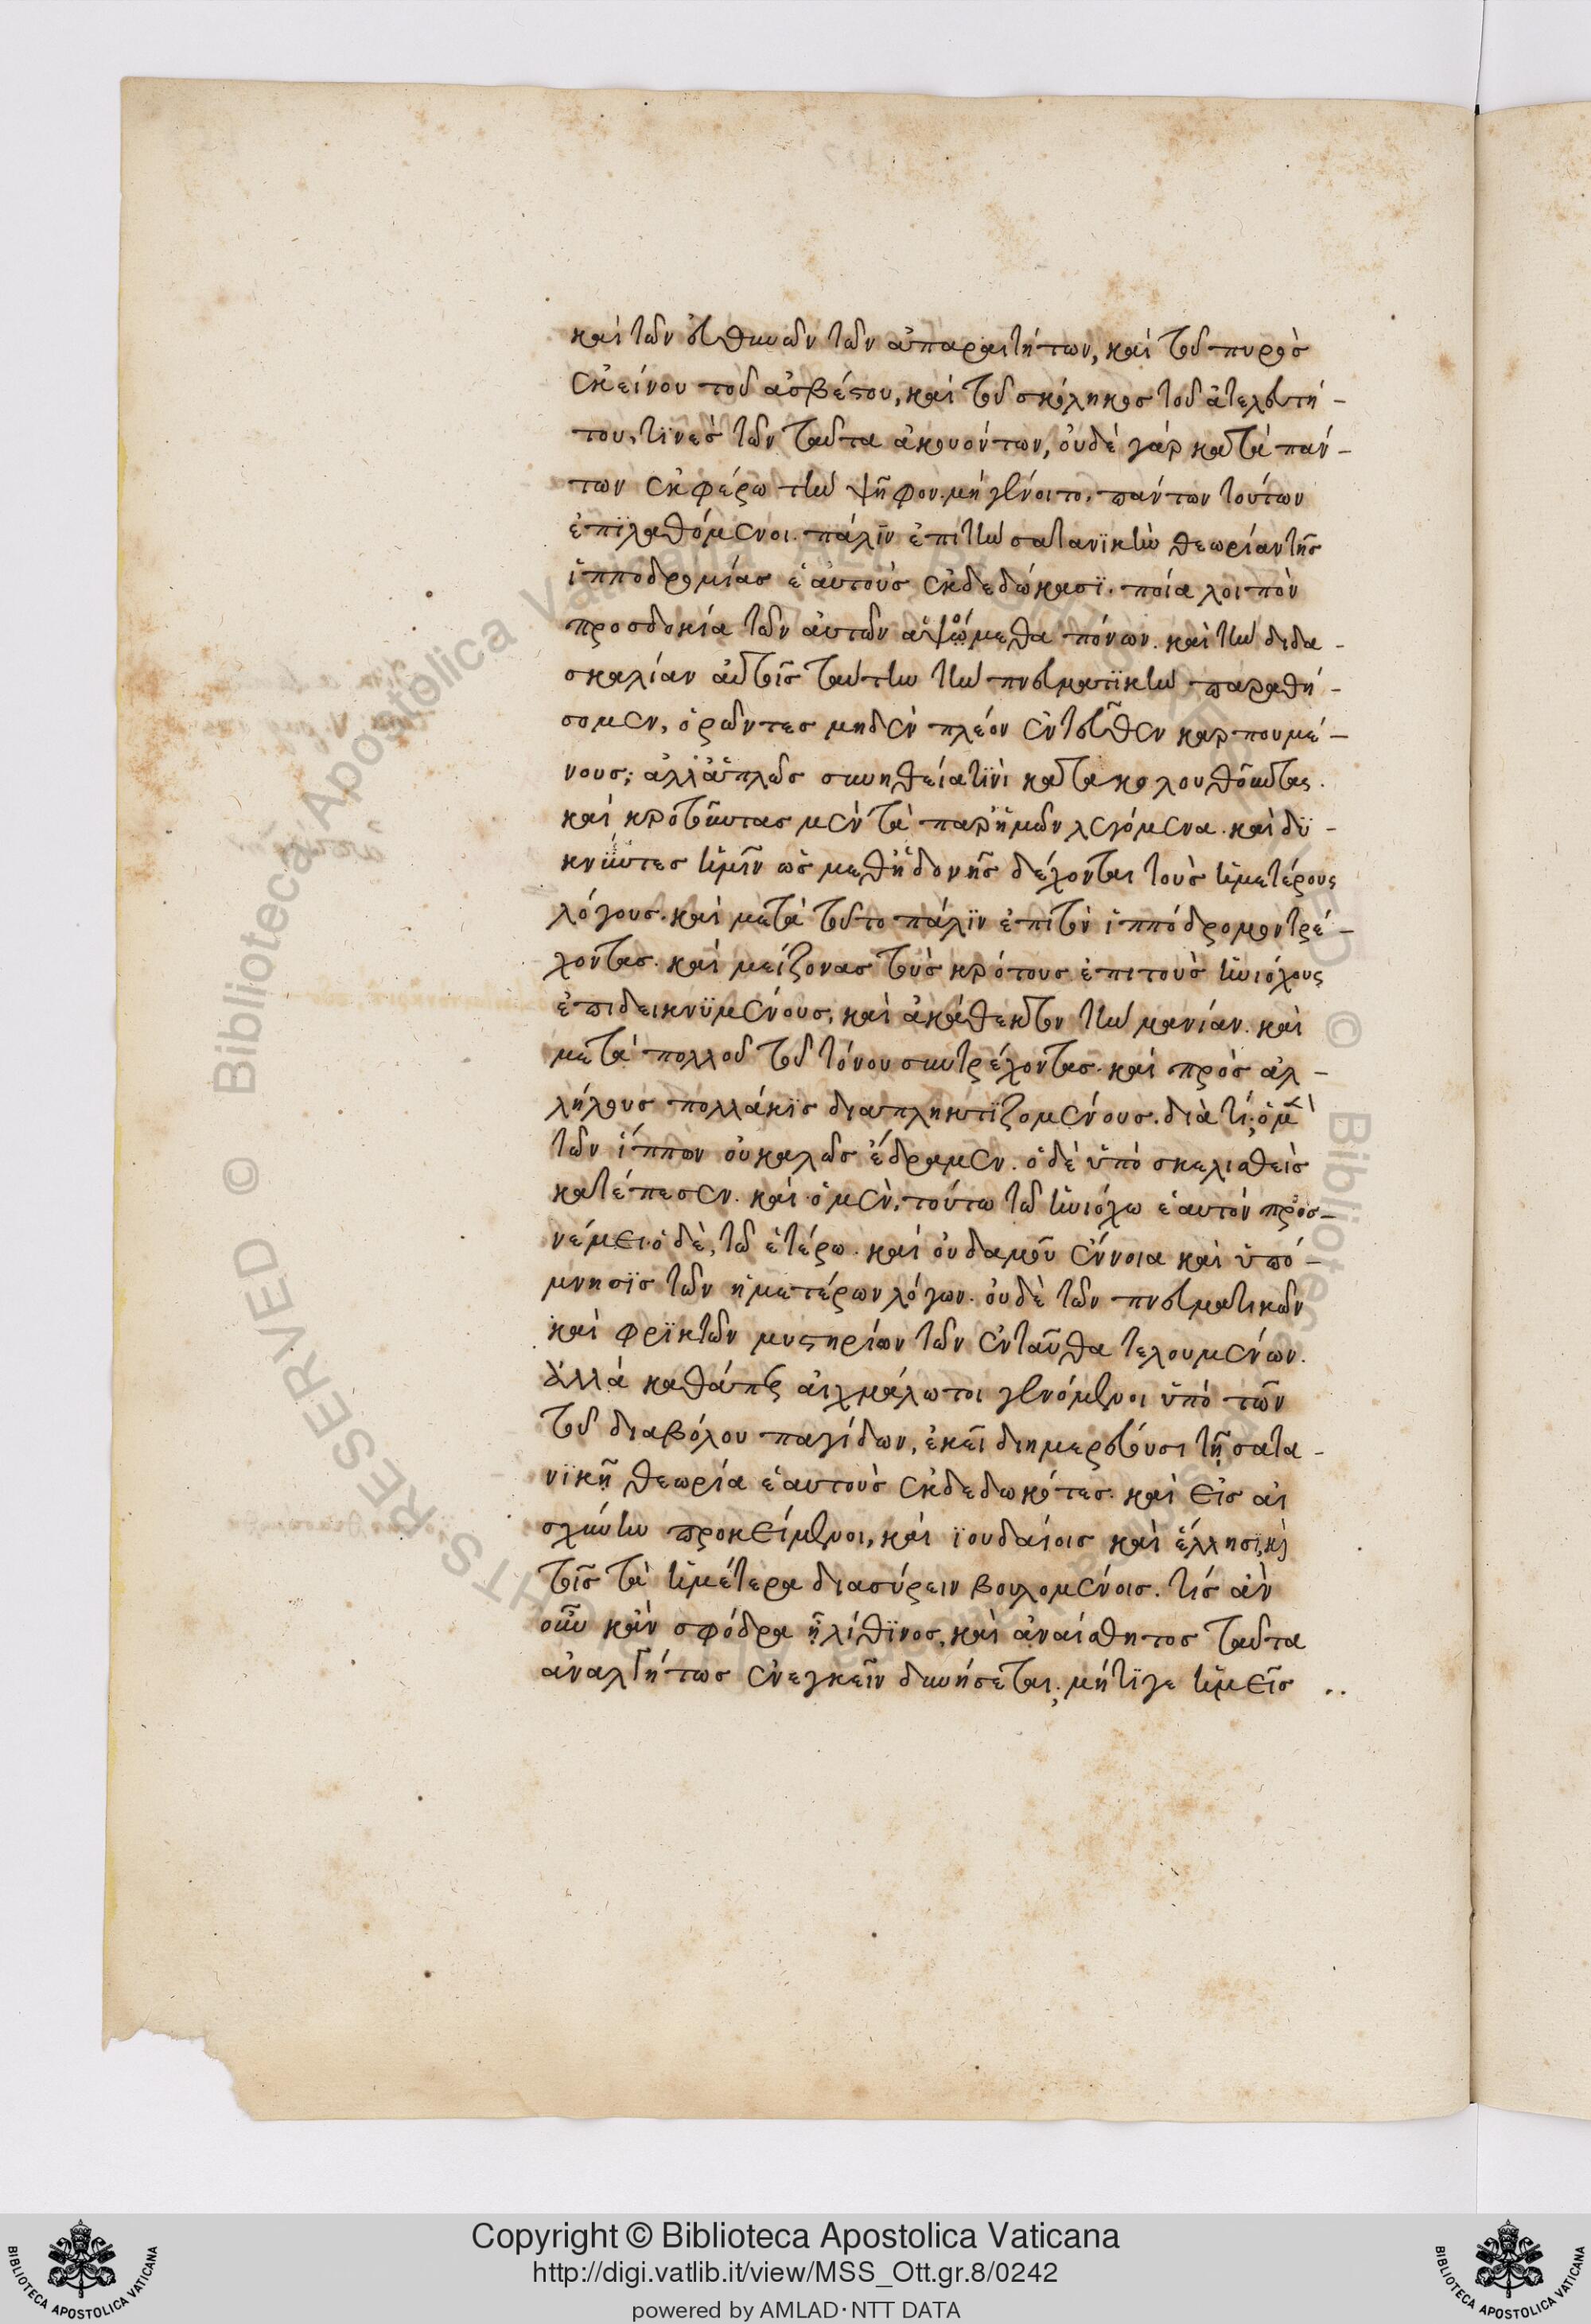 καὶ τῶν εὐθυνῶν τῶν ἀπαραιτήτων, καὶ τοῦ πυρὸς
ἐκείνου τοῦ ἀσβέστου, καὶ τοῦ σκώληκος τοῦ ἀτελευτή-
του, τϊνὲς τῶν ταῦτα ἀκουόντων, οὐδὲ γὰρ κατὰ πάν-
των ἐκφέρω τὴν ψῆφον. μὴ γένοιτο. πάντων τούτων
ἐπϊλαθόμενοι. πάλϊν ἐπὶ τὴν σατανϊκὴν θεωρίαν τῆς
ἱπποδρομίας ἑαυτοὺς ἐκδεδώκασϊ. ποία λοιπὸν
προσδοκία τῶν αὐτῶν ἁψώμεθα πόνων. καὶ τὴν διδα-
σκαλίαν αὐτοῖς ταύτην τὴν πνευματϊκὴν παραθή-
σομεν, ὁρῶντες μηδὲν πλέον ἐντεῦθεν καρπουμέ-
νους; ἀλλ' ἁπλῶς συνηθεία τϊνὶ κατακολουθοῦντας.
καὶ κροτοῦντας μὲν τὰ παρ' ἡμῶν λεγόμενα. καὶ δϋ-
κνϋντες ἡμῖν ὡς μεθ' ἡδονῆς δέχονται τοὺς ἡμετέρους
λόγους. καὶ μετὰ τοῦτο πάλϊν ἐπὶ τὸν ἱππόδρομον τρέ-
χοντας. καὶ μείζονας τοὺς κρότους ἐπι τοὺς ἡνιόχους
ἐπιδεικνϋμένους, καὶ ἀκάθεκτον τὴν μανίαν. καὶ
μετὰ πολλοῦ τοῦ τόνου συντρέχοντας. καὶ πρὸς ἀλ-
λήλους πολλάκϊς διαπληκτϊζομένους. διὰ τί; ὁ μὲν
τῶν ἵππων οὐ καλῶς ἔδραμεν. ὁ δὲ ὑποσκελισθεὶς
κατέπεσεν. καὶ ὁ μὲν, τούτω τῶ ἡνιόχω ἑαυτὸν προσ-
νέμει. ὁ δὲ, τῶ ἑτέρω. καὶ οὐδαμοῦ ἔννοια καὶ ὑπό-
μνησϊς τῶν ἡμετέρων λόγων. οὐδὲ τῶν πνευματικῶν
καὶ φρϊκτῶν μυστηρίων τῶν ἐνταῦθα τελουμένων.
ἀλλὰ καθάπερ αἰχμάλωτοι γενόμενοι ὑπὸ τῶν
τοῦ διαβόλου παγίδων, ἐκεῖ διημερεύουσι τῇ σατα-
νϊκῇ θεωρία ἑαυτοὺς ἐκδεδωκότες. καὶ εἰς αἰ
σχύνην προκείμενοι, καὶ ϊουδαίοις καὶ ἕλλησϊ, κὶ
τοῖς τὰ ἡμέτερα διασύρειν βουλομένοις. τίς ἂν
οὖν κἂν σφόδρα ᾖ λίθϊνος, καὶ ἀναίσθητος ταῦτα
ἀναλγήτως ἐνεγκεῖν δυνήσεται; μήτϊγε ἡμεῖς ..
Copyright © Biblioteca Apostolica Vaticana
http://digi.vatlib.it/view/MSS_Ott.gr.8/0242
powered by AMLAD·NTT DATA